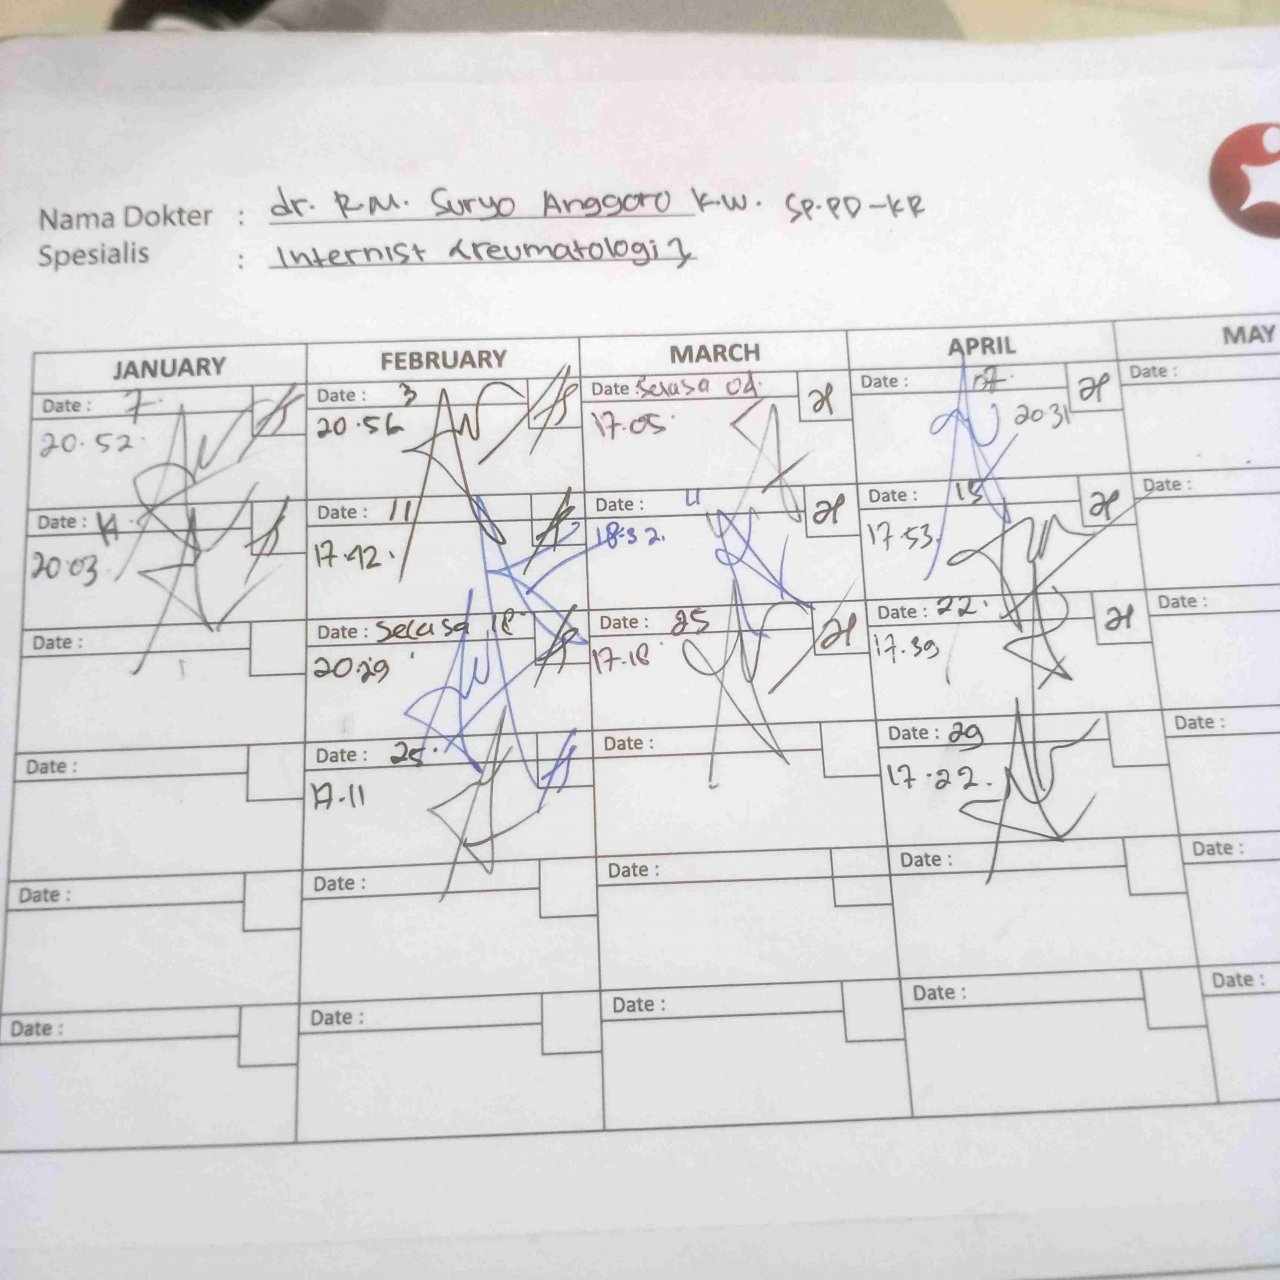 Nama Dokter : dr. R.M. Suryo Anggoro K.W. SP.PD-KR
Spesialis : Internist {reumatologi}
JANUARY FEBRUARY MARCH APRIL MAY
Date : 7 Date : 3 Date : Selasa 04 Date : 07 Date :
20.52 20.56 17.05 20.31
Date : 14 Date : 11 Date : 11 Date : 15 Date :
20.03 17.42 18.32. 17.53
Date : Date : Selasa 18 Date : 25 Date : 22 Date :
20.29 17.18 17.39
Date : Date : 25 Date : Date : 29 Date :
17.11 17.22
Date : Date : Date : Date : Date :
Date : Date : Date : Date : Date :